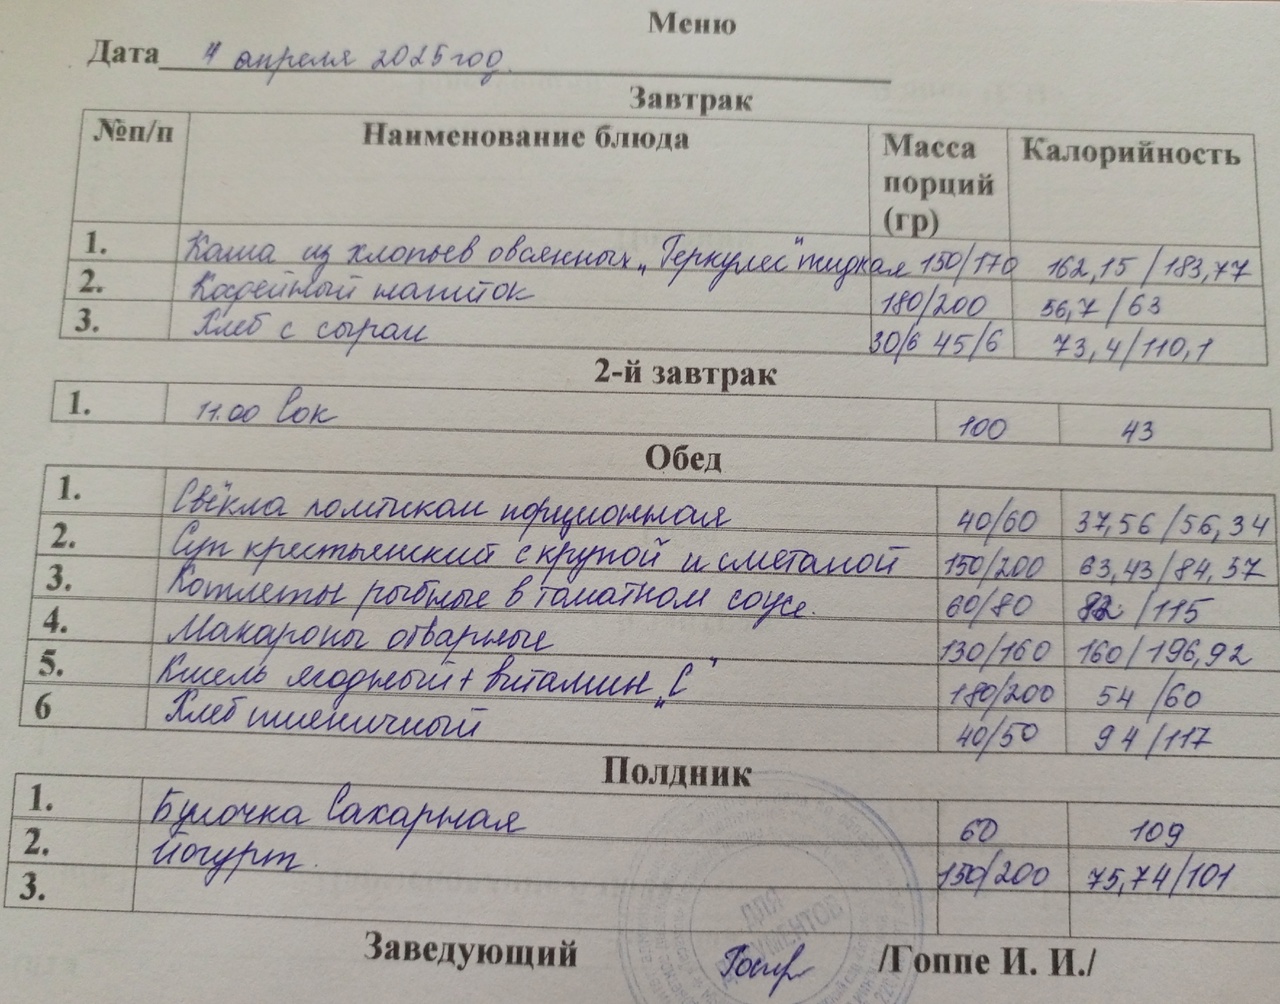 Меню
Дата 4 апреля 2025 год.
Завтрак
№п/п Наименование блюда Масса порций (гр) Калорийность
1. Каша из хлопьев овсянных „Геркулес" жидкая 150/170 162,15/183,77
2. Кофейный напиток 180/200 56,7/63
3. Хлеб с сыром 30/6 45/6 73,4/110,1
2-й завтрак
1. 11.00 Сок 100 43
Обед
1. Свёкла ломтикам порционная 40/60 37,56/56,34
2. Суп крестьянский с крупой и сметаной 150/200 63,43/84,57
3. Котлеты рыбные в томатном соусе. 60/80 82/115
4. Макароны отварные 130/160 160/196,92
5. Кисель ягодный + витамин „С" 180/200 54/60
6 Хлеб пшеничный 40/50 94/117
Полдник
1. Булочка Сахарная 60 109
2. Йогурт. 150/200 75,74/101
3.
ДЛЯ ДОКУМЕНТОВ
Заведующий /Гоппе И. И./